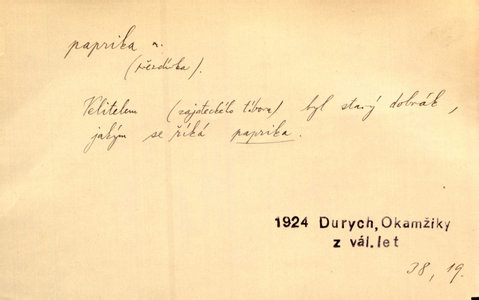 paprika n.
(přezdívka).
Velitelem (zajateckého tábora) byl starý dobrák,
jakým se říká paprika.
1924 Durych, Okamžiky
z vál. let
38, 19.